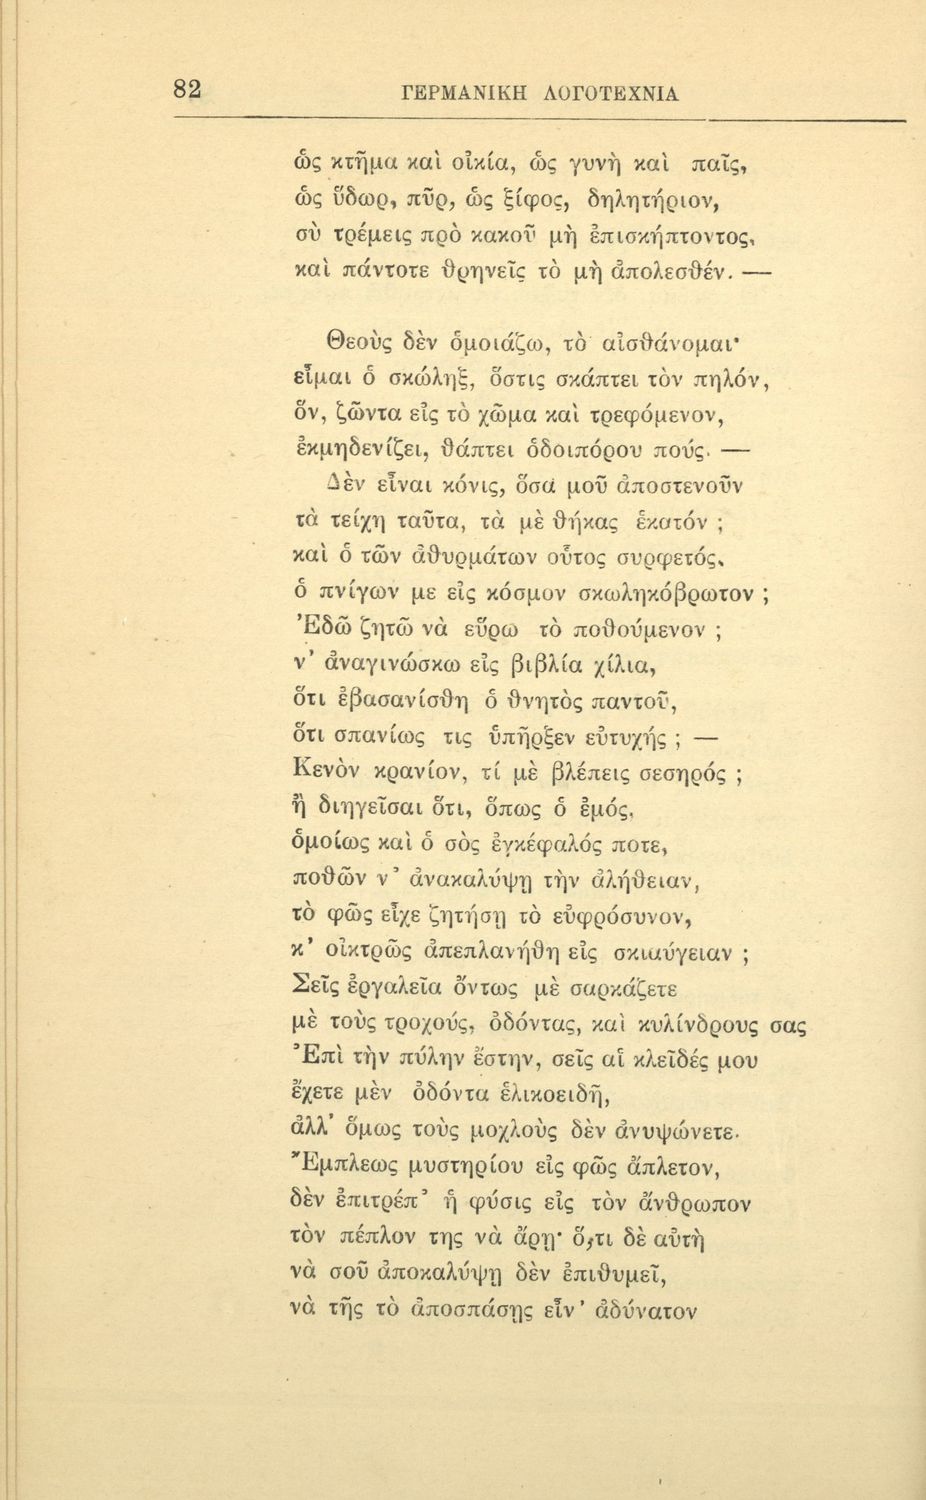 82
ΓΕΡΜΑΝΙΚΗ ΛΟΓΟΤΕΧΝΙΑ
ὡς κτῆμα καὶ οἰκία, ὡς γυνὴ καὶ παῖς,
ὡς ὕδωρ, πῦρ, ὡς ξίφος, δηλητήριον,
σὺ τρέμεις πρὸ κακοῦ μὴ ἐπισκήπτοντος,
καὶ πάντοτε θρηνεῖς τὸ μὴ ἀπολεσθέν. —
Θεοὺς δὲν ὁμοιάζω, τὸ αἰσθάνομαι·
εἶμαι ὁ σκώληξ, ὅστις σκάπτει τὸν πηλόν,
ὅν, ζῶντα εἰς τὸ χῶμα καὶ τρεφόμενον,
ἐκμηδενίζει, θάπτει ὁδοιπόρου πούς. —
Δὲν εἶναι κόνις, ὅσα μοῦ ἀποστενοῦν
τὰ τείχη ταῦτα, τὰ μὲ θήκας ἑκατόν ;
καὶ ὁ τῶν ἀθυρμάτων οὗτος συρφετός,
ὁ πνίγων με εἰς κόσμον σκωληκόβρωτον ;
Ἐδῶ ζητῶ νὰ εὕρω τὸ ποθούμενον ;
ν’ ἀναγινώσκω εἰς βιβλία χίλια,
ὅτι ἐβασανίσθη ὁ θνητὸς παντοῦ,
ὅτι σπανίως τις ὑπῆρξεν εὐτυχής ; —
Κενὸν κρανίον, τί μὲ βλέπεις σεσηρός ;
ἢ διηγεῖσαι ὅτι, ὅπως ὁ ἐμός,
ὁμοίως καὶ ὁ σὸς ἐγκέφαλός ποτε,
ποθῶν ν’ ἀνακαλύψῃ τὴν ἀλήθειαν,
τὸ φῶς εἶχε ζητήσῃ τὸ εὐφρόσυνον,
κ’ οἰκτρῶς ἀπεπλανήθη εἰς σκιαύγειαν ;
Σεῖς ἐργαλεῖα ὄντως μὲ σαρκάζετε
μὲ τοὺς τροχούς, ὀδόντας, καὶ κυλίνδρους σας
Ἐπὶ τὴν πύλην ἔστην, σεῖς αἱ κλεῖδές μου
ἔχετε μὲν ὀδόντα ἑλικοειδῆ,
ἀλλ’ ὅμως τοὺς μοχλοὺς δὲν ἀνυψώνετε.
Ἔμπλεως μυστηρίου εἰς φῶς ἄπλετον,
δὲν ἐπιτρέπ’ ἡ φύσις εἰς τὸν ἄνθρωπον
τὸν πέπλον της νὰ ἄρῃ· ὅ,τι δὲ αὐτὴ
νὰ σοῦ ἀποκαλύψῃ δὲν ἐπιθυμεῖ,
νὰ τῆς τὸ ἀποσπάσῃς εἶν’ ἀδύνατον